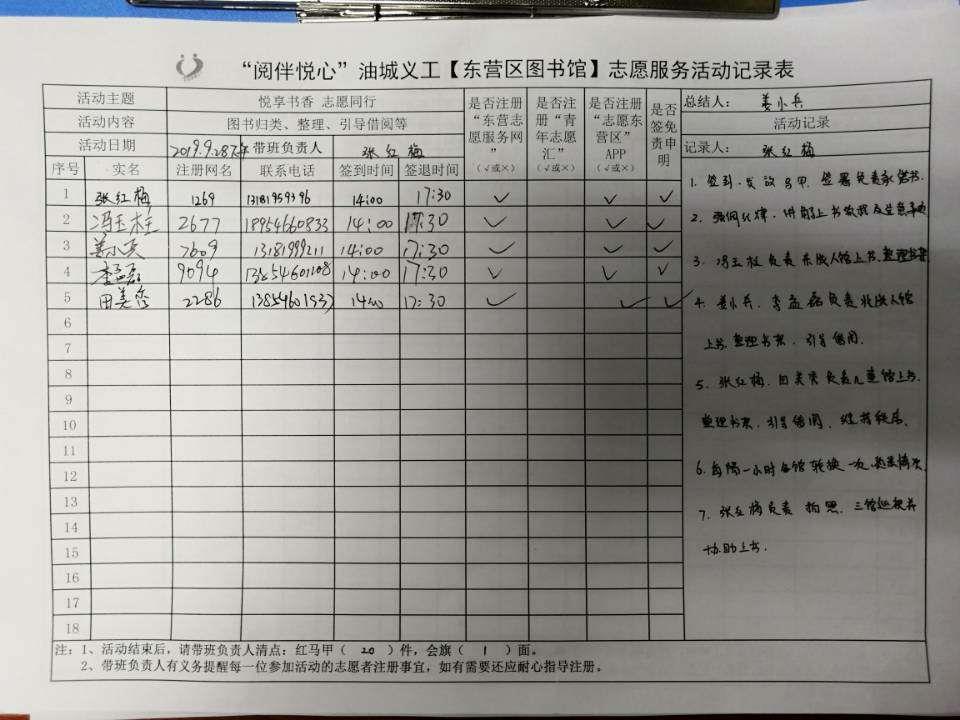 “阅伴悦心”油城义工【东营区图书馆】志愿服务活动记录表
活动主题 悦享书香 志愿同行
活动内容 图书归类、整理、引导借阅等
活动日期 2019.9.28下午 带班负责人 张红梅
是否注册“东营志愿服务网” (√或×)
是否注册“青年志愿汇” (√或×)
是否注册“志愿东营区”APP (√或×)
是否签免责申明
总结人: 姜小兵
活动记录
记录人: 张红梅
序号 实名 注册网名 联系电话 签到时间 签退时间
1 张红梅 1269 14:00 17:30 ✓ ✓ ✓
2 冯玉柱 2677 18954660833 14:00 17:30 ✓ ✓ ✓
3 姜小兵 7609 13181999211 14:00 17:30 ✓ ✓ ✓
4 李孟磊 9094 13854601108 14:00 17:30 ✓ ✓ ✓
5 田美秀 2286 14:00 17:30 ✓ ✓ ✓
6
7
8
9
10
11
12
13
14
15
16
17
18
1. 签到、发放马甲、签署免责承诺书.
2. 强调纪律,讲解上书教程及注意事项
3. 冯玉柱负责东成人馆上书.整理书架
4. 姜小兵、李孟磊负责北成人馆
上书.整理书架、引导借阅.
5、张红梅、田美秀负责儿童馆上书.
整理书架、引导借阅、维持秩序.
6. 每隔一小时各馆轮换一次,熟悉情况.
7、张红梅负责拍照、三馆巡视并
协助上书.
注:1、活动结束后,请带班负责人清点:红马甲( 20 )件,会旗( 1 )面。
2、带班负责人有义务提醒每一位参加活动的志愿者注册事宜,如有需要还应耐心指导注册。